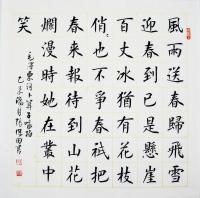 風雨送春歸飛雪
迎春到已是懸崖
百丈冰猶有花枝
俏〻也不爭春祇把
春來報待到山花
爛漫時她在叢中
笑
毛澤東詞卜算子咏梅